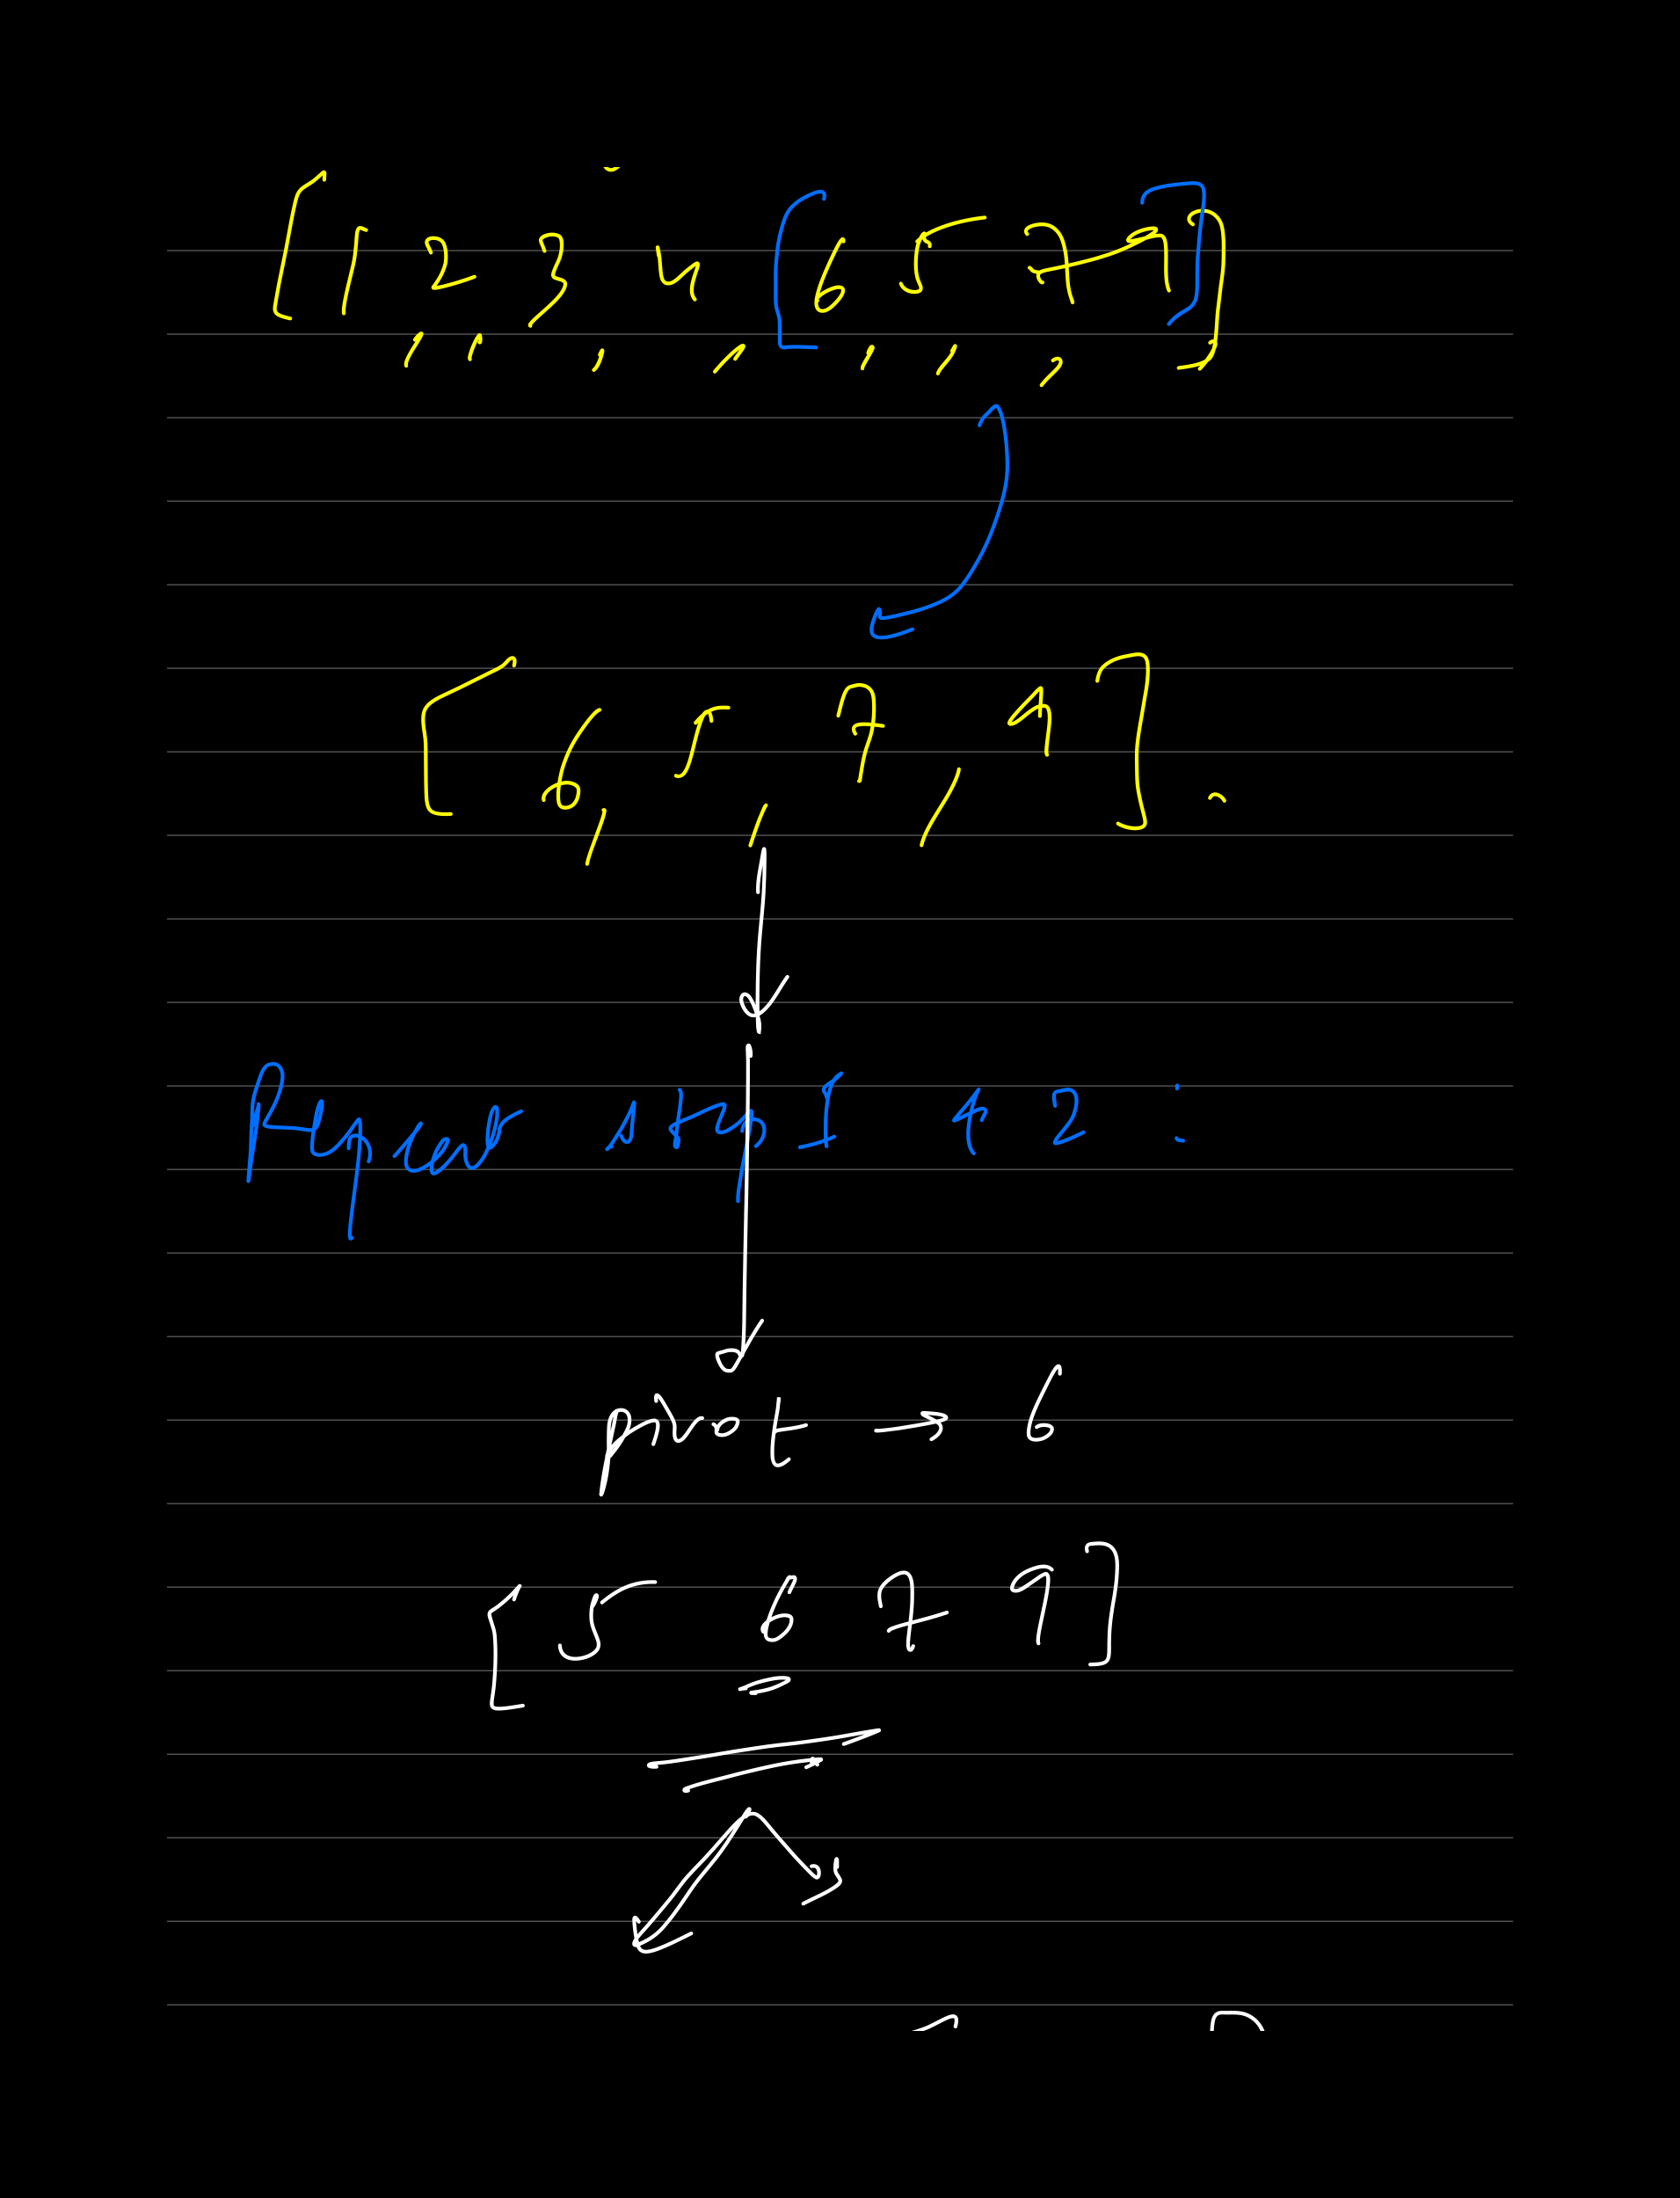 [1, 2, 3, 4, [6, 5, 7, 9]]
[6, 5, 7, 9].
Repeat step 1 & 2 :
pivot → 6
[5 6 7 9]